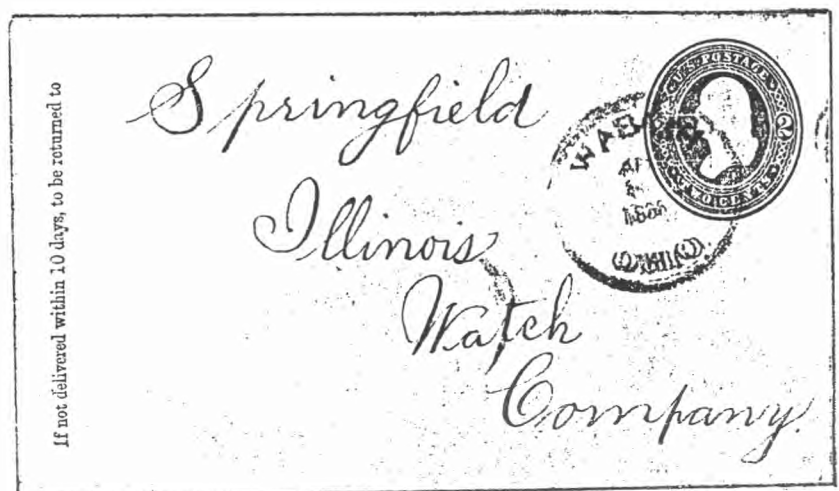 If not delivered within 10 days, to be returned to
Springfield
Illinois
Watch
Company.
U.S. POSTAGE
2
TWO CENTS
OHIO